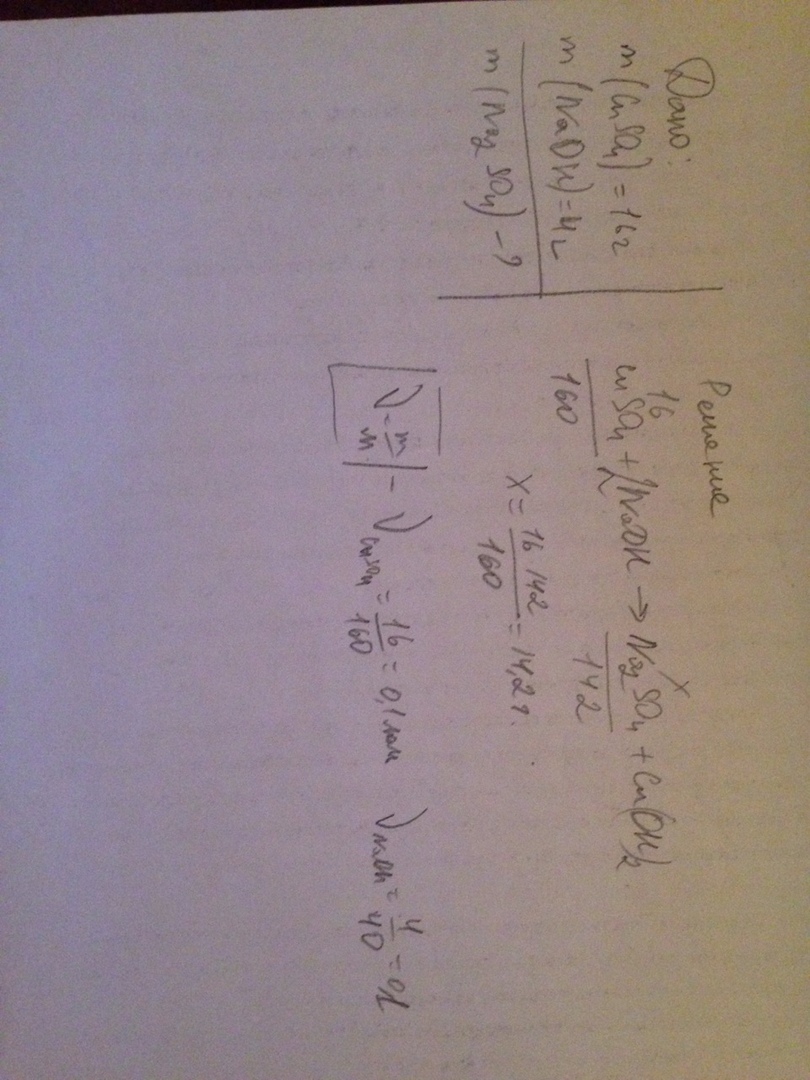 Дано:
m(CuSO4)=16г
m(NaOH)=4г
m(Na2SO4)-?
Решение
16 x
CuSO4+2NaOH→Na2SO4+Cu(OH)2
160 142
x= 16 142 / 160 = 14,2г.
ν=m/M - νCuSO4= 16/160 =0,1моль νNaOH= 4/40 =0,1